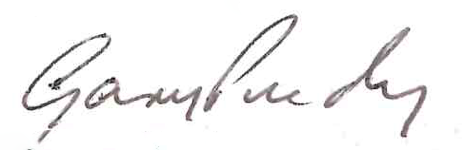 Gary Purdy